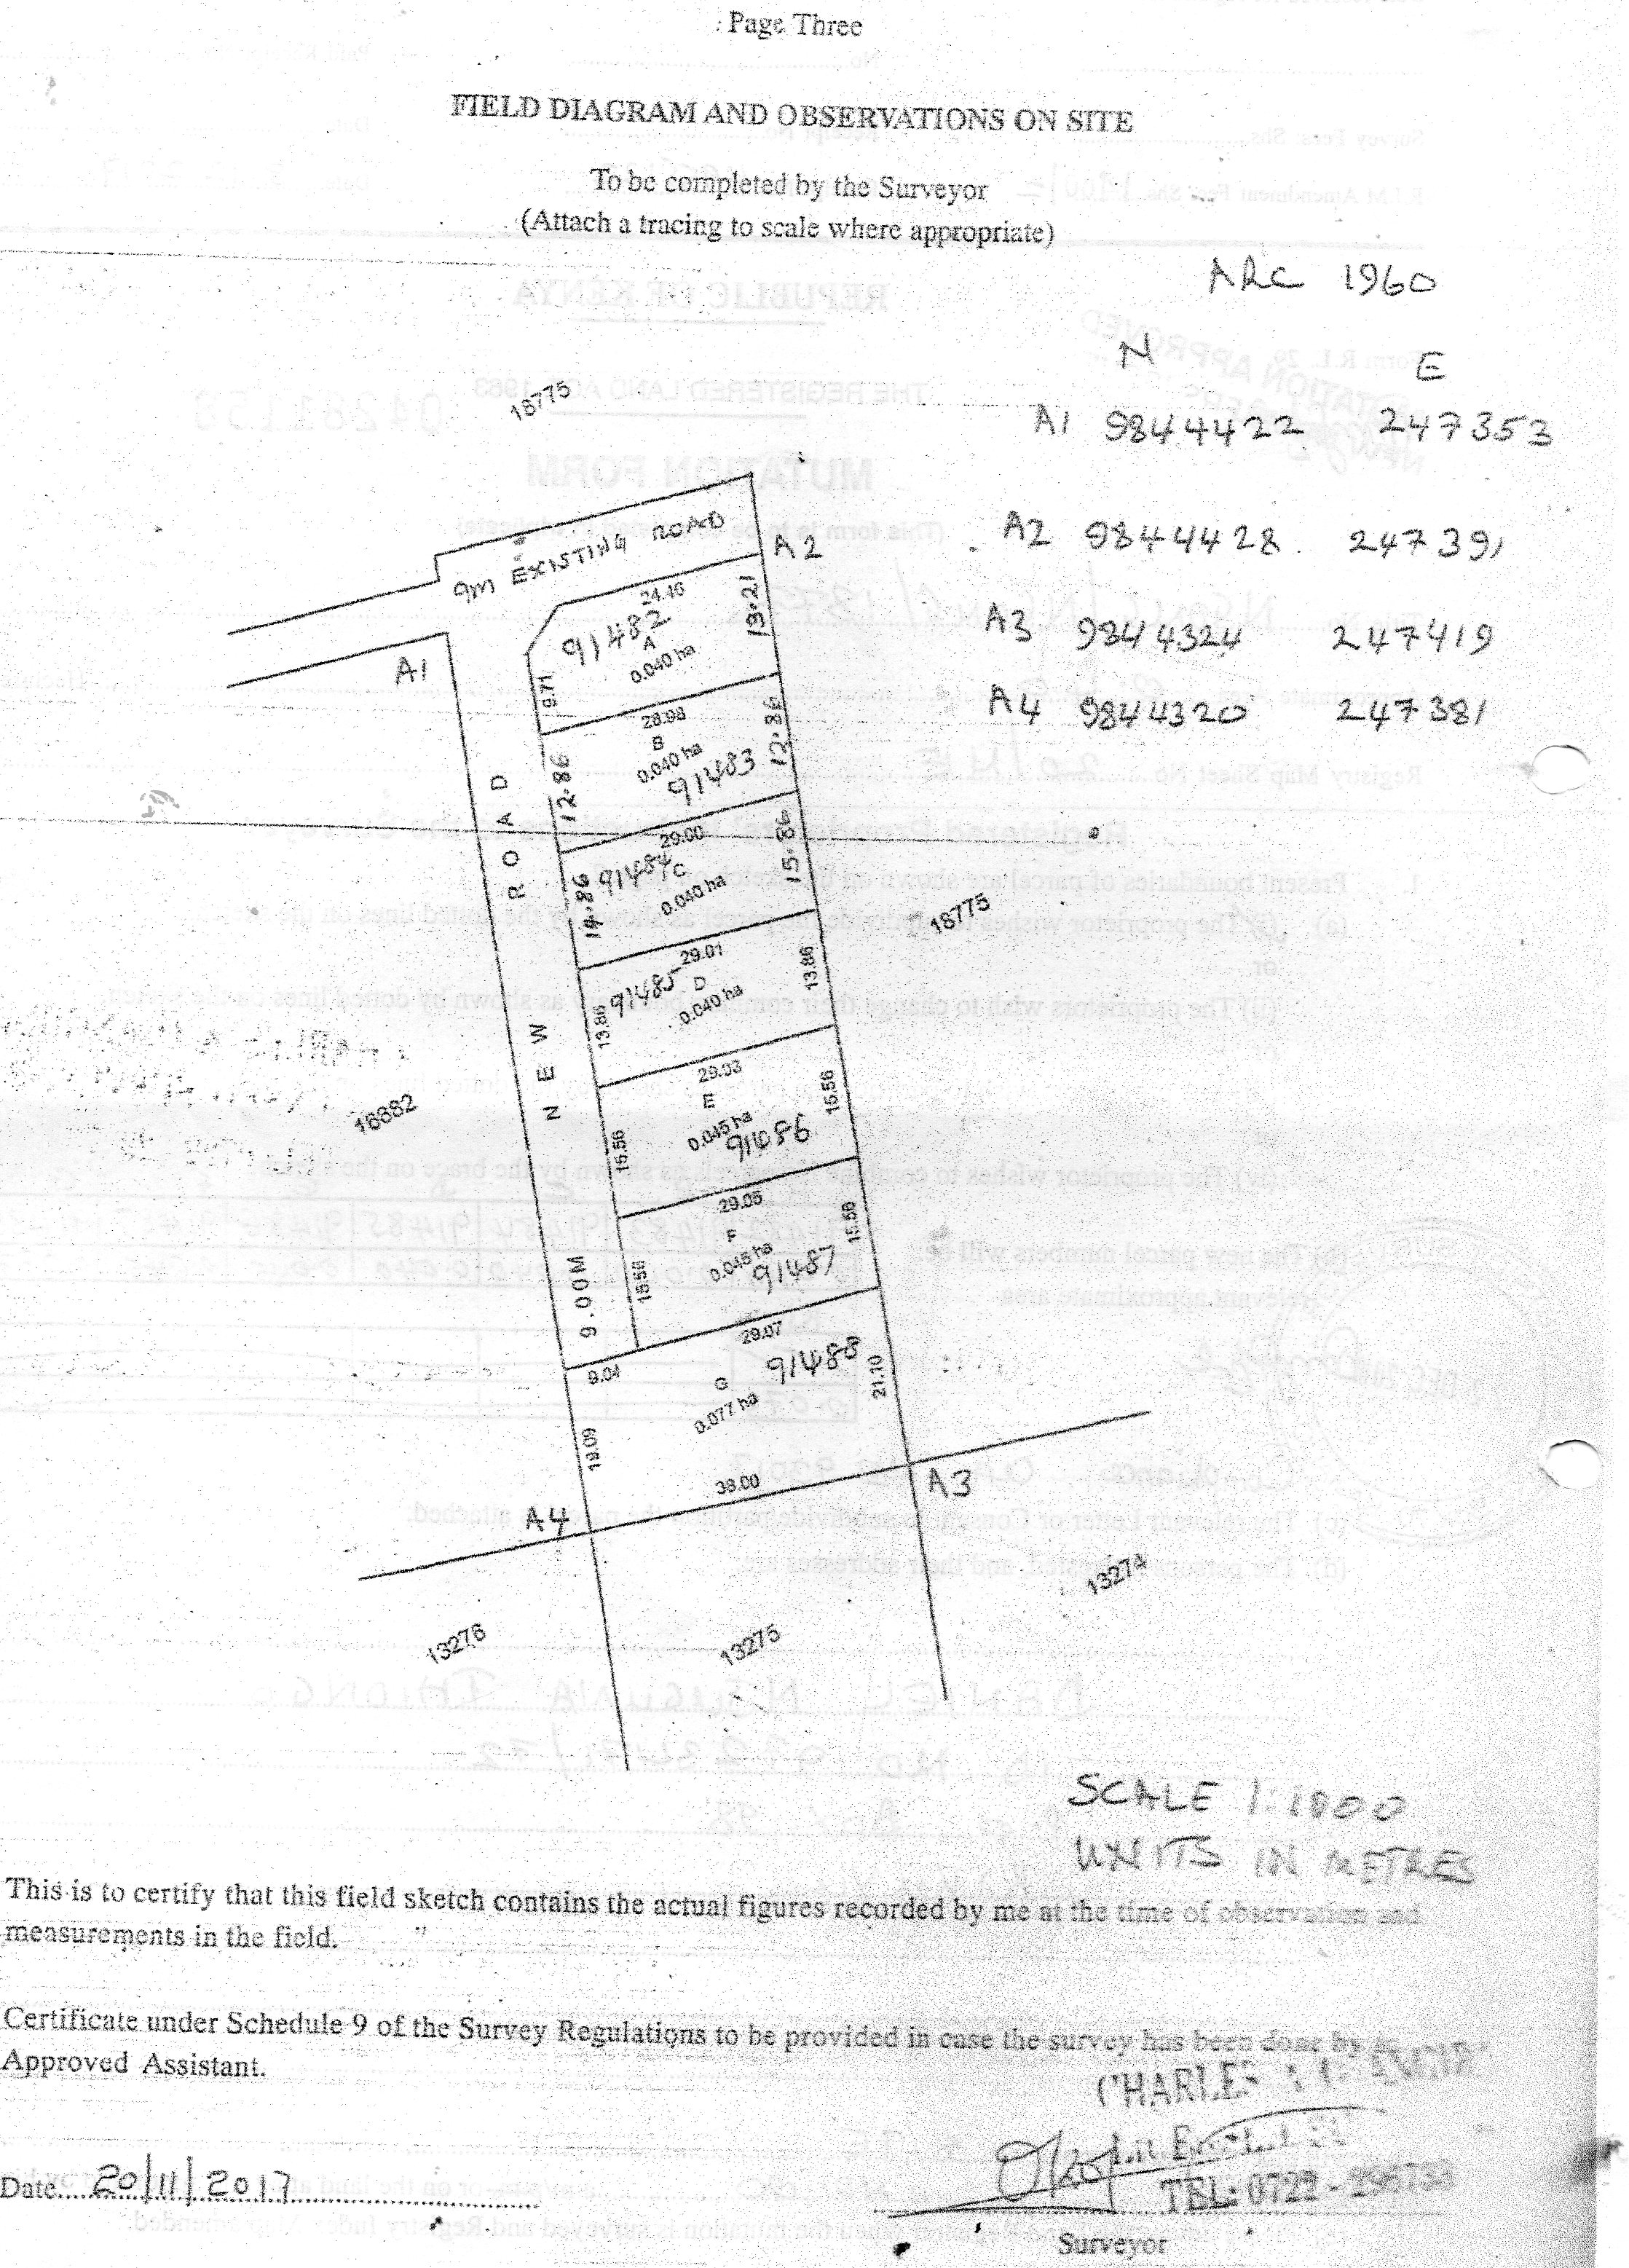 Page Three
FIELD DIAGRAM AND OBSERVATIONS ON SITE
To be completed by the Surveyor
(Attach a tracing to scale where appropriate)
ARC 1960
N E
A1 9844422 247353
A2 9844428 247391
A3 9844324 247419
A4 9844320 247381
18775
9m EXISTING ROAD
A2
A1
24.46
91482
A
0.040 ha
13.21
9.71
28.98
B
0.040 ha
91483
12.86
12.86
29.00
91484
C
0.040 ha
15.86
14.86
18775
29.01
91485
D
0.040 ha
13.86
13.86
29.03
E
0.045 ha
91486
15.56
15.56
16882
29.05
F
0.045 ha
91487
15.56
15.56
9.00M NEW ROAD
29.07
9.04
91488
G
0.077 ha
21.10
19.09
38.00
A3
A4
13274
13276
13275
SCALE 1:1000
UNITS IN METRES
This is to certify that this field sketch contains the actual figures recorded by me at the time of observation and
measurements in the field.
Certificate under Schedule 9 of the Survey Regulations to be provided in case the survey has been done by
Approved Assistant.
CHARLES
TEL: 0722 -
Date 20/11/2017
Surveyor